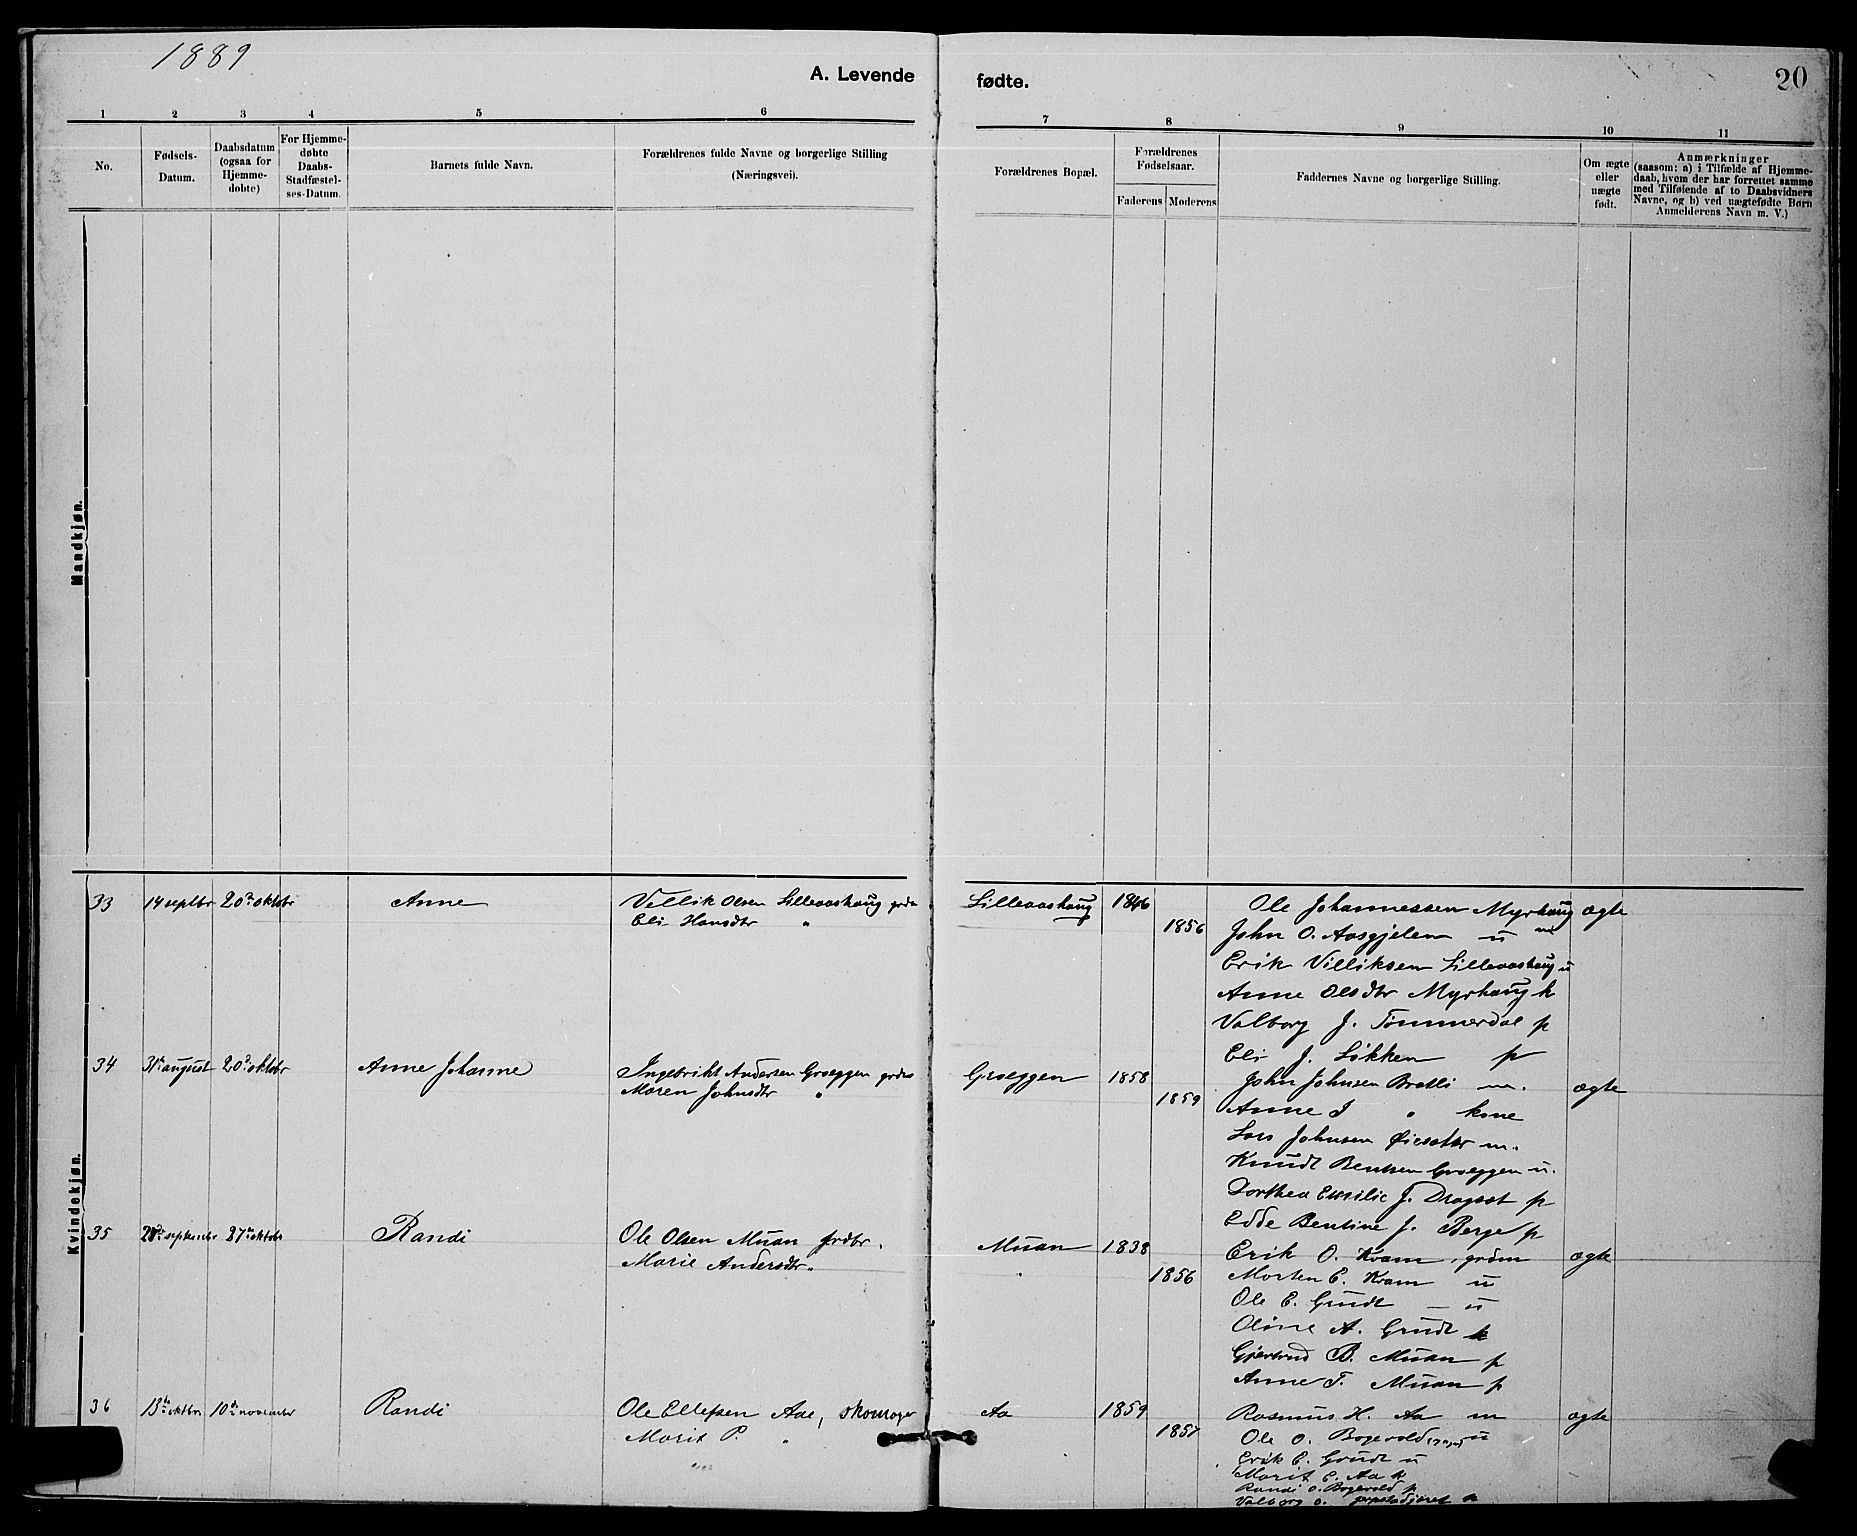 1889
A. Levende fødte.
20
1 2 3 4 5 6 7 8 9 10 11
No.
Fødsels-
Datum.
Daabsdatum
(ogsaa for
Hjemme-
døbte)
For Hjemme-
døbte
Daabs-
Stadfæstel-
ses-Datum.
Barnets fulde Navn.
Forældrenes fulde Navne og borgerlige Stilling
(Næringsvei).
Forældrenes Bopæl.
Forældrenes
Fødselsaar.
Faderens Moderens
Faddernes Navne og borgerlige Stilling.
Om ægte
eller
uægte
født.
Anmærkninger
(saasom: a) i Tilfælde af Hjemme-
daab, hvem der har forrettet samme
med Tilføiende af to Daabsvidners
Navne, og b) ved uægtefødte Børn
Anmelderens Navn m. V.)
Mandkjøn.
Kvindekjøn.
33 14 septbr 20de oktobr Anne Villik Olsen Lilleaashaug grdm Lilleaashaug 1846 Ole Johannessen Myrhaug m ægte
Eli Hansdtr " 1856 John O. Aasgjelen u
Erik Villiksen Lilleaashaug u
Anne Olsdtr Myrhaug k
Valborg J. Tømmerdal p
Eli J. Løkken p
34 31te august 20de oktobr Anne Johanne Ingebrikt Andersen Groeggen grdm Groeggen 1858 John Johnsen Bratli m. ægte
Maren Johnsdtr " 1859 Anne J " kone
Lars Johnsen m.
Knudt Bentsen Groeggen u.
Dorthea Emilie J. Dragset p
Edde Bentine J. Berge p
35 septembr 27de oktobr Randi Ole Olsen Muan grdbr. Muan 1838 Erik O. Kvam, grdm ægte
Marie Andersdtr " 1856 Morten E. Kvam u
Ole E. Grudt — u
Oline A. Grudt k
Gjertrud B. Muan p
Anne T. Muan p
36 13de oktbr 10de novembr Randi Ole Ellefsen Aae, skomager Aa 1859 Rasmus H. Aa m ægte
Marit P. " 1857 Ole O. Bogevold u
Erik E. Grudt u
Marit E. Aa k
Randi O. Bogevold p
Valborg O.